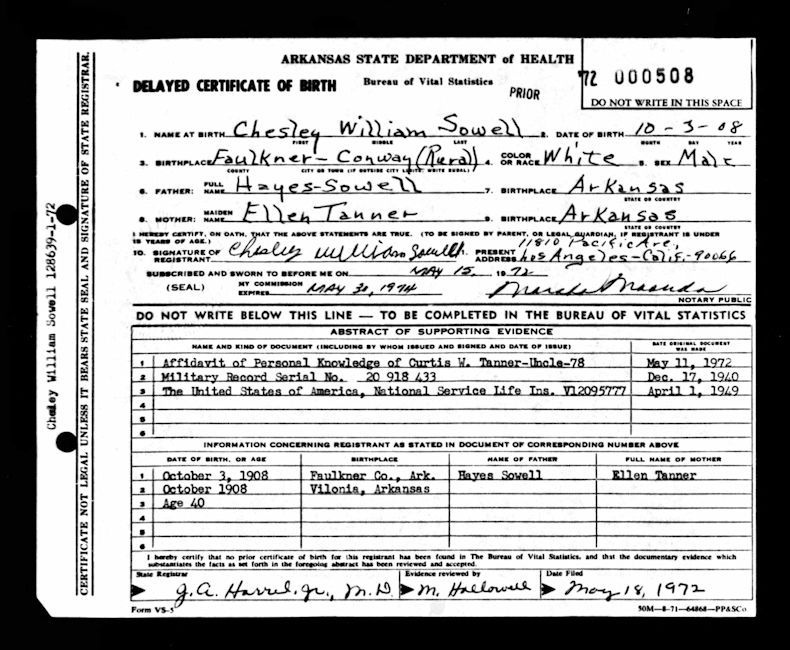 ARKANSAS STATE DEPARTMENT of HEALTH
DELAYED CERTIFICATE OF BIRTH Bureau of Vital Statistics PRIOR
'72 000508
DO NOT WRITE IN THIS SPACE
1. NAME AT BIRTH Chesley William Sowell 2. DATE OF BIRTH 10-3-08
FIRST MIDDLE LAST MONTH DAY YEAR
3. BIRTHPLACE Faulkner-Conway (Rural) 4. COLOR OR RACE White 5. SEX Male
COUNTY CITY OR TOWN (IF OUTSIDE CITY LIMITS, WRITE RURAL)
6. FATHER: FULL NAME Hayes-Sowell 7. BIRTHPLACE Arkansas
STATE OR COUNTRY
8. MOTHER: MAIDEN NAME Ellen Tanner 9. BIRTHPLACE Arkansas
STATE OR COUNTRY
I HEREBY CERTIFY, ON OATH, THAT THE ABOVE STATEMENTS ARE TRUE. (TO BE SIGNED BY PARENT, OR LEGAL GUARDIAN, IF REGISTRANT IS UNDER
18 YEARS OF AGE.) 11810 Pacific Ave,
10. SIGNATURE OF REGISTRANT Chesley William Sowell 11. PRESENT ADDRESS Los Angeles-Calif-90066
SUBSCRIBED AND SWORN TO BEFORE ME ON MAY 15, 1972
(SEAL) MY COMMISSION EXPIRES MAY 30, 1974
NOTARY PUBLIC
DO NOT WRITE BELOW THIS LINE — TO BE COMPLETED IN THE BUREAU OF VITAL STATISTICS
ABSTRACT OF SUPPORTING EVIDENCE
NAME AND KIND OF DOCUMENT (INCLUDING BY WHOM ISSUED AND SIGNED AND DATE OF ISSUE) DATE ORIGINAL DOCUMENT WAS MADE
1 Affidavit of Personal Knowledge of Curtis W. Tanner-Uncle-78 May 11, 1972
2 Military Record Serial No. 20 918 433 Dec. 17, 1940
3 The United States of America, National Service Life Ins. V12095777 April 1, 1949
4
5
6
INFORMATION CONCERNING REGISTRANT AS STATED IN DOCUMENT OF CORRESPONDING NUMBER ABOVE
DATE OF BIRTH, OR AGE BIRTHPLACE NAME OF FATHER FULL NAME OF MOTHER
1 October 3, 1908 Faulkner Co., Ark. Hayes Sowell Ellen Tanner
2 October 1908 Vilonia, Arkansas
3 Age 40
4
5
6
I hereby certify that no prior certificate of birth for this registrant has been found in The Bureau of Vital Statistics, and that the documentary evidence which
substantiates the facts as set forth in the foregoing abstract has been reviewed and accepted.
State Registrar Evidence reviewed by Date Filed
J. A. Harrel, Jr., M.D. M. Hallowell May 18, 1972
Form VS-5 50M—8-71—64868—PP&SCo
Chesley William Sowell 128639-1-72
CERTIFICATE NOT LEGAL UNLESS IT BEARS STATE SEAL AND SIGNATURE OF STATE REGISTRAR.